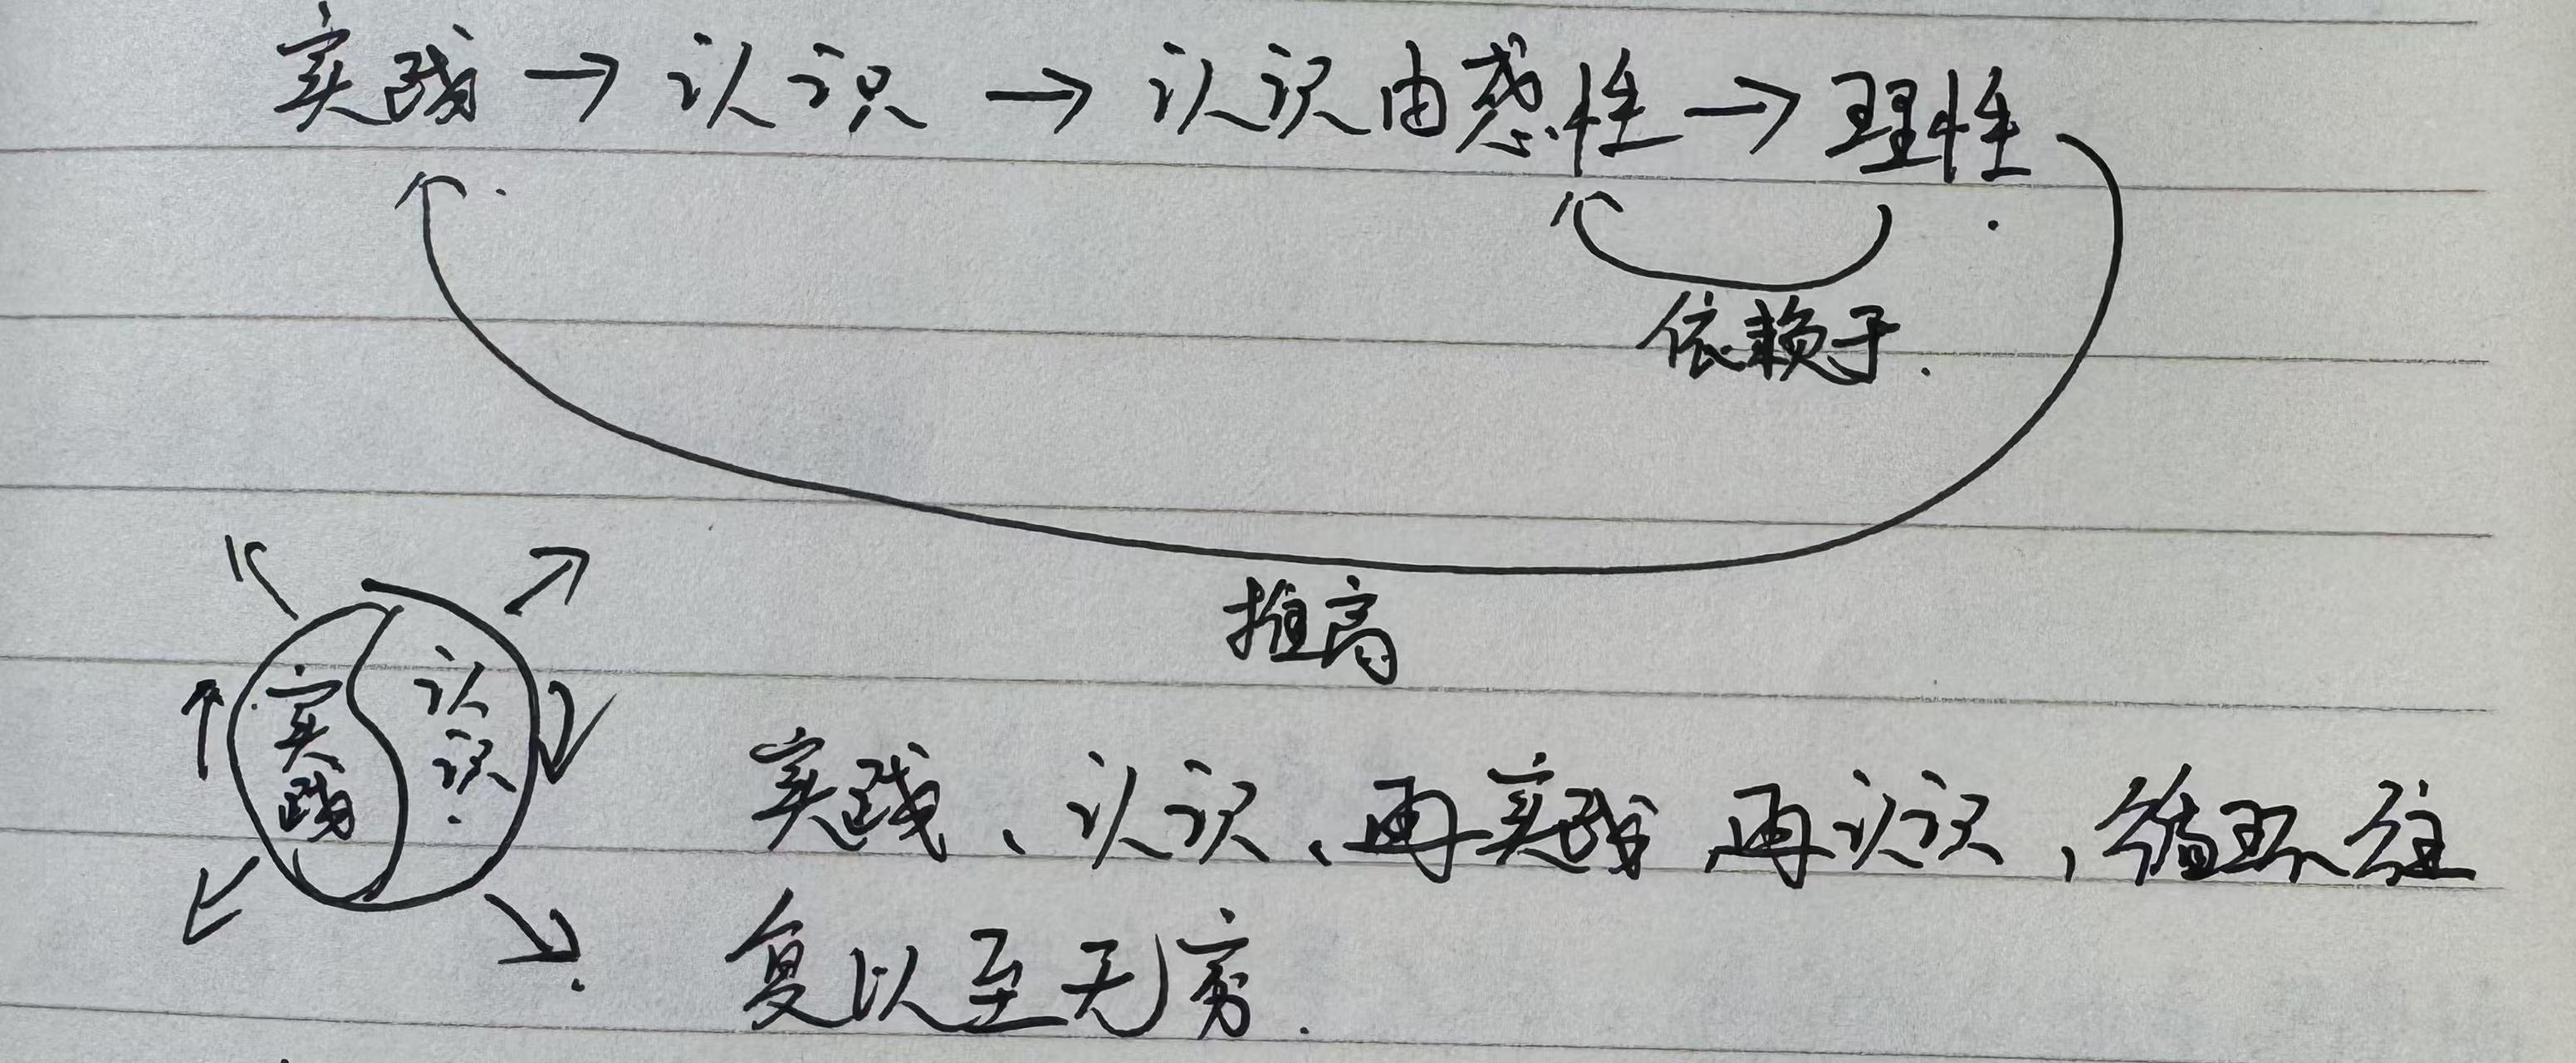 实践→认识→认识由感性→理性
依赖于.
推高
认识
实践
实践、认识、再实践 再认识,循环往
复以至无穷.